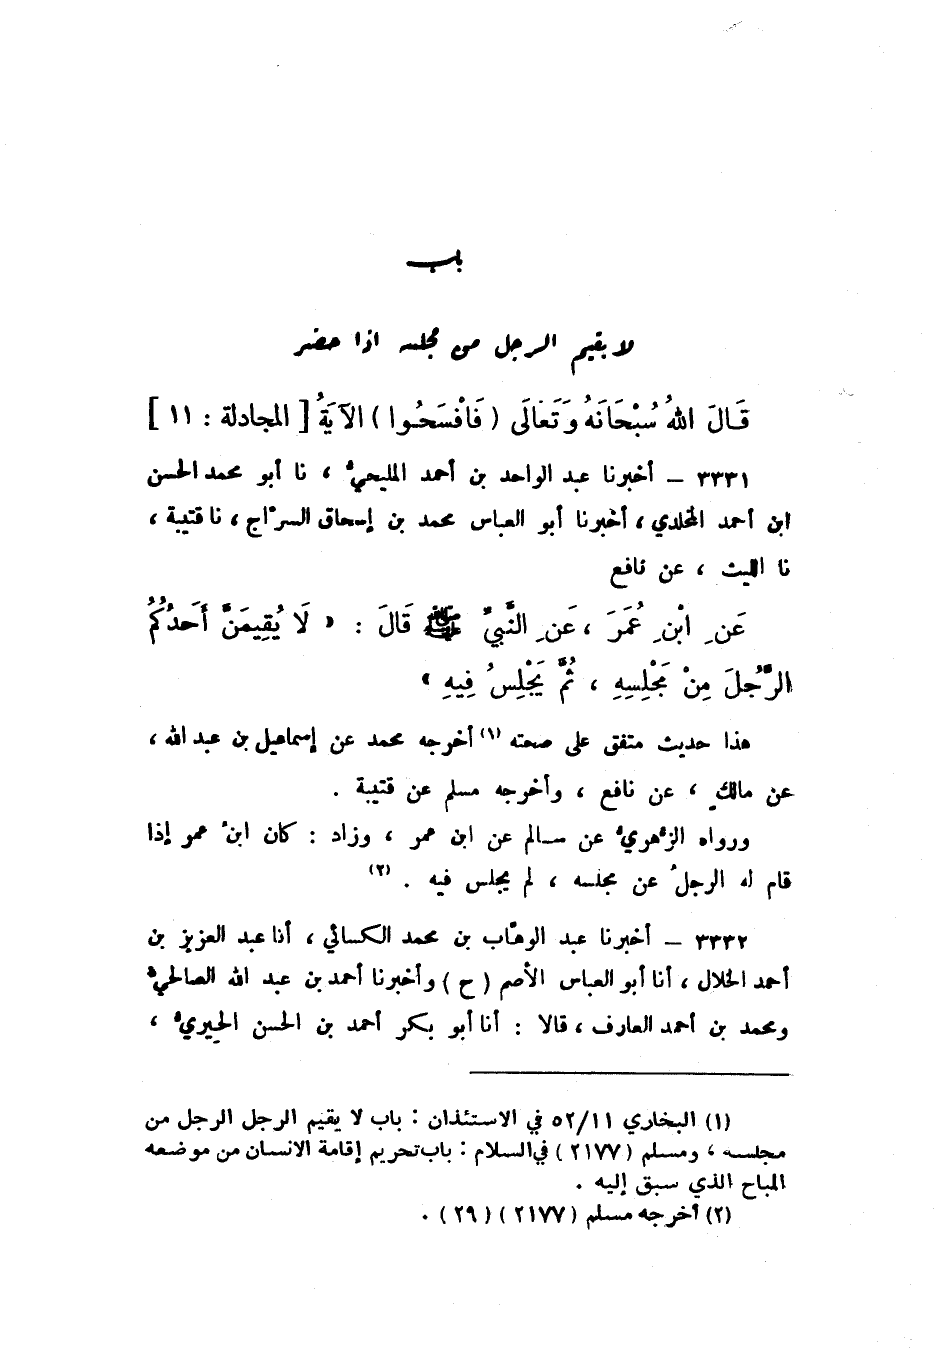 باب
لا يقيم الرجل من مجلسه اذا حضر
قَالَ اللهُ سُبْحَانَهُ وَتَعَالَى ( فَافْسَحُوا ) الآيَةُ [ المجادلة : ١١ ]
٣٣٣١ – أخبرنا عبد الواحد بن أحمد المليحيُّ ، نا أبو محمد الحسن
ابن أحمد المخلدي ، أخبرنا أبو العباس محمد بن إسحاق السرّاج ، نا قتيبة ،
نا الليث ، عن نافع
عَنِ ابْنِ عُمَرَ ، عَنِ النَّبِيِّ ﷺ قَالَ : « لَا يُقِيمَنَّ أَحَدُكُمُ
الرَّجُلَ مِنْ مَجْلِسِهِ ، ثُمَّ يَجْلِسُ فِيهِ »
هذا حديث متفق على صحته (١) أخرجه محمد عن إسماعيل بن عبد الله ،
عن مالكٍ ، عن نافع ، وأخرجه مسلم عن قتيبة .
ورواه الزُّهريُّ عن سالم عن ابن عمر ، وزاد : كان ابنُ عمر إذا
قام له الرجلُ عن مجلسه ، لم يجلس فيه . (٢)
٣٣٣٢ – أخبرنا عبد الوهّاب بن محمد الكسائي ، أنا عبد العزيز بن
أحمد الخلال ، أنا أبو العباس الأصم ( ح ) وأخبرنا أحمد بن عبد الله الصالحيُّ
ومحمد بن أحمد العارف ، قالا : أنا أبو بكر أحمد بن الحسن الحِيريُّ ،
(١) البخاري ٥٢/١١ في الاستئذان : باب لا يقيم الرجل الرجل من
مجلسه ، ومسلم ( ٢١٧٧ ) في السلام : باب تحريم إقامة الانسان من موضعه
المباح الذي سبق إليه .
(٢) أخرجه مسلم ( ٢١٧٧ ) ( ٢٩ ) .